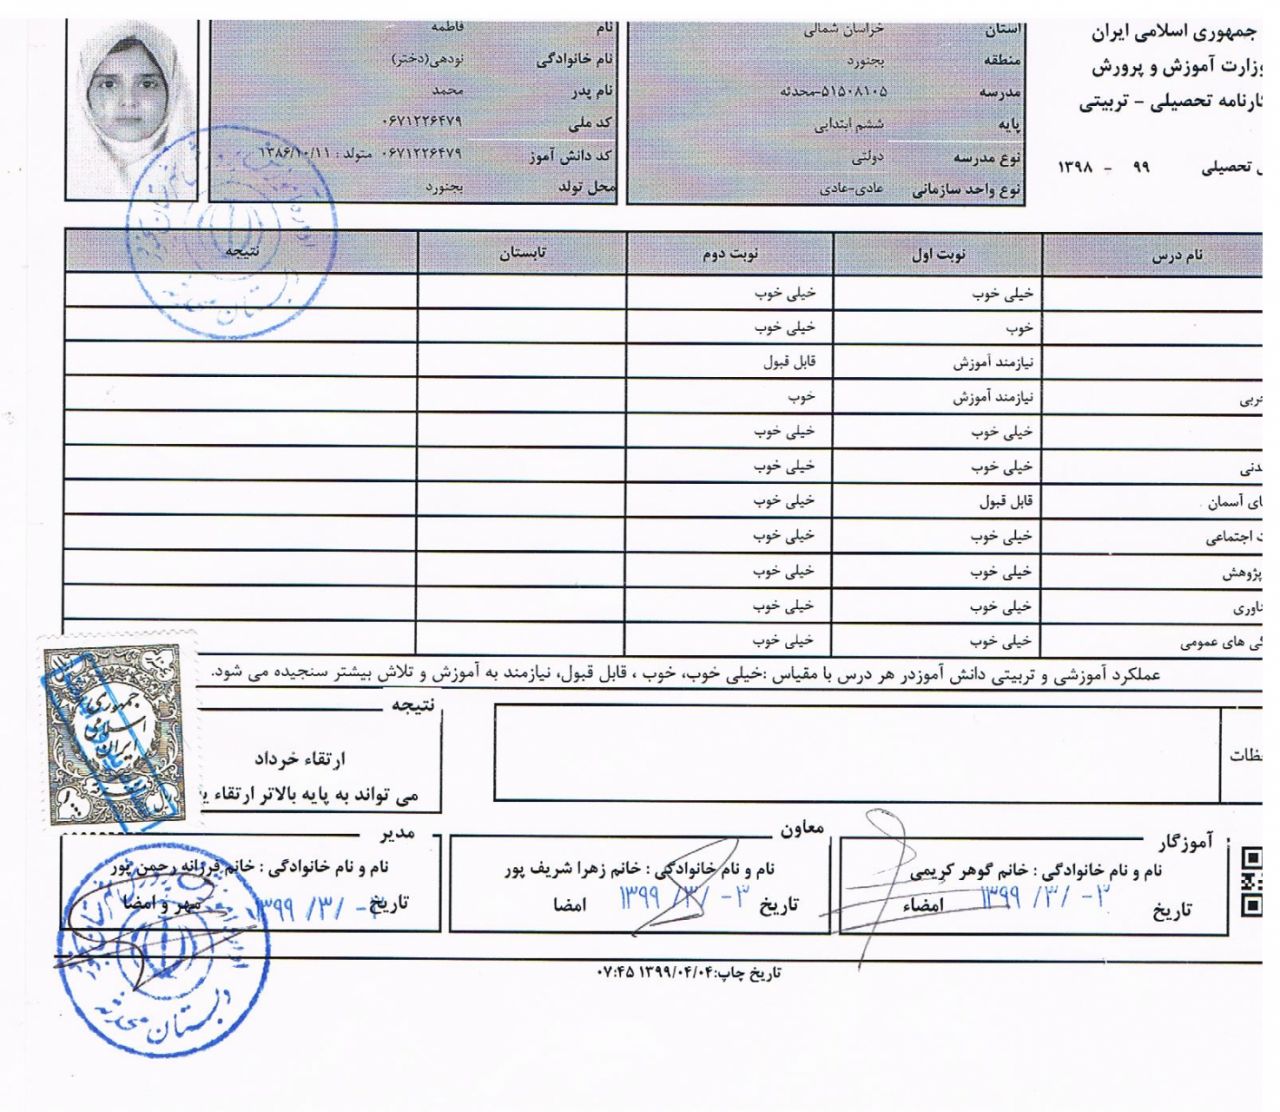 جمهوری اسلامی ایران
وزارت آموزش و پرورش
کارنامه تحصیلی - تربیتی
تحصیلی ۹۹ - ۱۳۹۸
استان خراسان شمالی
منطقه بجنورد
مدرسه ۵۱۵۰۸۱۰۵-محدثه
پایه ششم ابتدایی
نوع مدرسه دولتی
نوع واحد سازمانی عادی-عادی
نام فاطمه
نام خانوادگی نودهی(دختر)
نام پدر محمد
کد ملی ۰۶۷۱۲۲۶۴۷۹
کد دانش آموز ۰۶۷۱۲۲۶۴۷۹ متولد : ۱۳۸۶/۱۰/۱۱
محل تولد بجنورد
نام درس نوبت اول نوبت دوم تابستان نتیجه
خیلی خوب خیلی خوب
خوب خیلی خوب
نیازمند آموزش قابل قبول
نیازمند آموزش خوب
خیلی خوب خیلی خوب
خیلی خوب خیلی خوب
آسمان قابل قبول خیلی خوب
اجتماعی خیلی خوب خیلی خوب
پژوهش خیلی خوب خیلی خوب
خیلی خوب خیلی خوب
های عمومی خیلی خوب خیلی خوب
عملکرد آموزشی و تربیتی دانش آموزدر هر درس با مقیاس :خیلی خوب، خوب ، قابل قبول، نیازمند به آموزش و تلاش بیشتر سنجیده می شود.
نتیجه
ارتقاء خرداد
می تواند به پایه بالاتر ارتقاء
جمهوری
اسلامی
ایران
آموزگار
نام و نام خانوادگی : خانم گوهر کریمی
تاریخ ۱۳۹۹/۳/-۳ امضاء
معاون
نام و نام خانوادگی : خانم زهرا شریف پور
تاریخ ۱۳۹۹/۳/-۳ امضا
مدیر
نام و نام خانوادگی : خانم فرزانه رحمن پور
تاریخ ۱۳۹۹/۳/-۳ مهر و امضا
دبستان محدثه
تاریخ چاپ:۱۳۹۹/۰۴/۰۴ ۰۷:۴۵